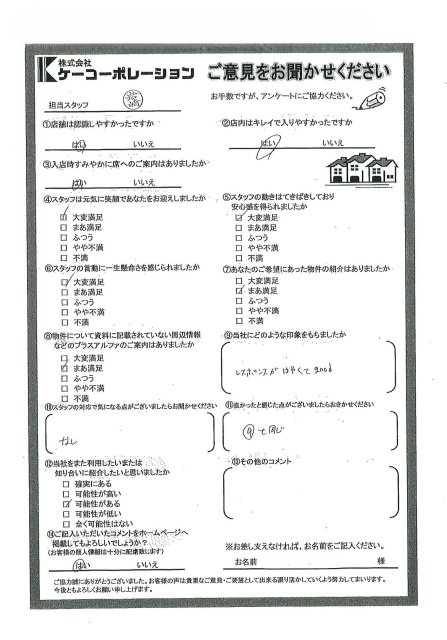 株式会社
ケーコーポレーション
ご意見をお聞かせください
担当スタッフ
お手数ですが、アンケートにご協力ください。
①店舗は認識しやすかったですか
はい いいえ
②店内はキレイで入りやすかったですか
はい いいえ
③入店時すみやかに席へのご案内はありましたか
はい いいえ
④スタッフは元気に笑顔であなたをお迎えしましたか
□ 大変満足
□ まあ満足
□ ふつう
□ やや不満
□ 不満
⑤スタッフの動きはてきぱきしており
安心感を得られましたか
□ 大変満足
□ まあ満足
□ ふつう
□ やや不満
□ 不満
⑥スタッフの言動に一生懸命さを感じられましたか
□ 大変満足
□ まあ満足
□ ふつう
□ やや不満
□ 不満
⑦あなたのご希望にあった物件の紹介はありましたか
□ 大変満足
□ まあ満足
□ ふつう
□ やや不満
□ 不満
⑧物件について資料に記載されていない周辺情報
などのプラスアルファのご案内はありましたか
□ 大変満足
□ まあ満足
□ ふつう
□ やや不満
□ 不満
⑨当社にどのような印象をもちましたか
レスポンスが はやくて good
⑩スタッフの対応で気になる点がございましたらお聞かせください
なし
⑪良かったと感じた点がございましたらおきかせください
⑨と同じ
⑫当社をまた利用したいまたは
知り合いに紹介したいと思いましたか
□ 確実にある
□ 可能性が高い
□ 可能性がある
□ 可能性が低い
□ 全く可能性はない
⑬その他のコメント
⑭ご記入いただいたコメントをホームページへ
掲載してもよろしいでしょうか?
(お客様の個人情報は十分に配慮致します)
はい いいえ
※お差し支えなければ、お名前をご記入ください。
お名前 様
ご協力誠にありがとうございました。お客様の声は貴重なご意見・ご要望として出来る限り活かしていくよう努力してまいります。
今後ともよろしくお願い申し上げます。